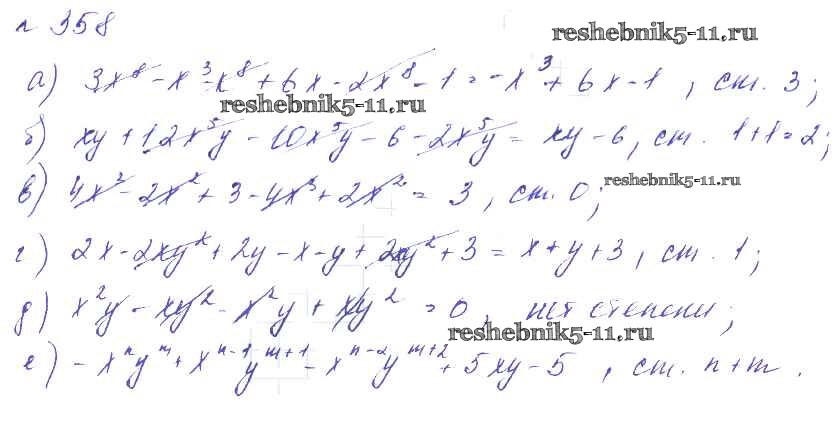 n 358
reshebnik5-11.ru
а) 3x⁸ - x³ - x⁸ + 6x - 2x⁸ - 1 = -x³ + 6x - 1 , ст. 3;
reshebnik5-11.ru
б) xy + 12x⁵y - 10x⁵y - 6 - 2x⁵y = xy - 6, ст. 1+1=2;
в) 4x³ - 2x² + 3 - 4x³ + 2x² = 3 , ст. 0;
reshebnik5-11.ru
г) 2x - 2xy² + 2y - x - y + 2xy² + 3 = x + y + 3 , ст. 1;
д) x²y - xy² - x²y + xy² = 0 , нет степени;
reshebnik5-11.ru
е) -xⁿyᵐ + xⁿ⁻¹yᵐ⁺¹ - xⁿ⁻²yᵐ⁺² + 5xy - 5 , ст. n+m .